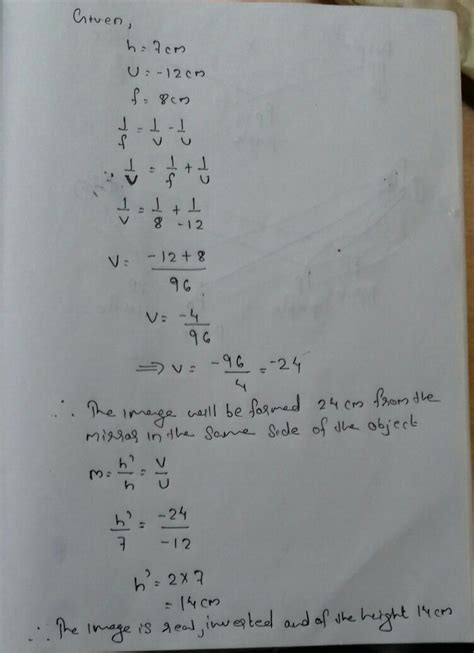 Given,
h = 7cm
U = -12cm
f = 8cm
1/f = 1/v - 1/u
∵ 1/v = 1/f + 1/u
1/v = 1/8 + 1/-12
V = -12+8/96
V = -4/96
⟹ V = -96/4 = -24
∴ The image will be formed 24 cm from the
mirror in the same side of the object
m = h'/h = V/U
h'/7 = -24/-12
h' = 2×7
= 14cm
∴ The image is real, inverted and of the height 14cm